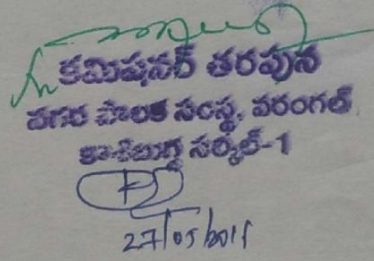 కమిషనర్ తరపున
నగర పాలక సంస్థ, వరంగల్
కాశిబుగ్గ సర్కిల్-1
27/05/2015